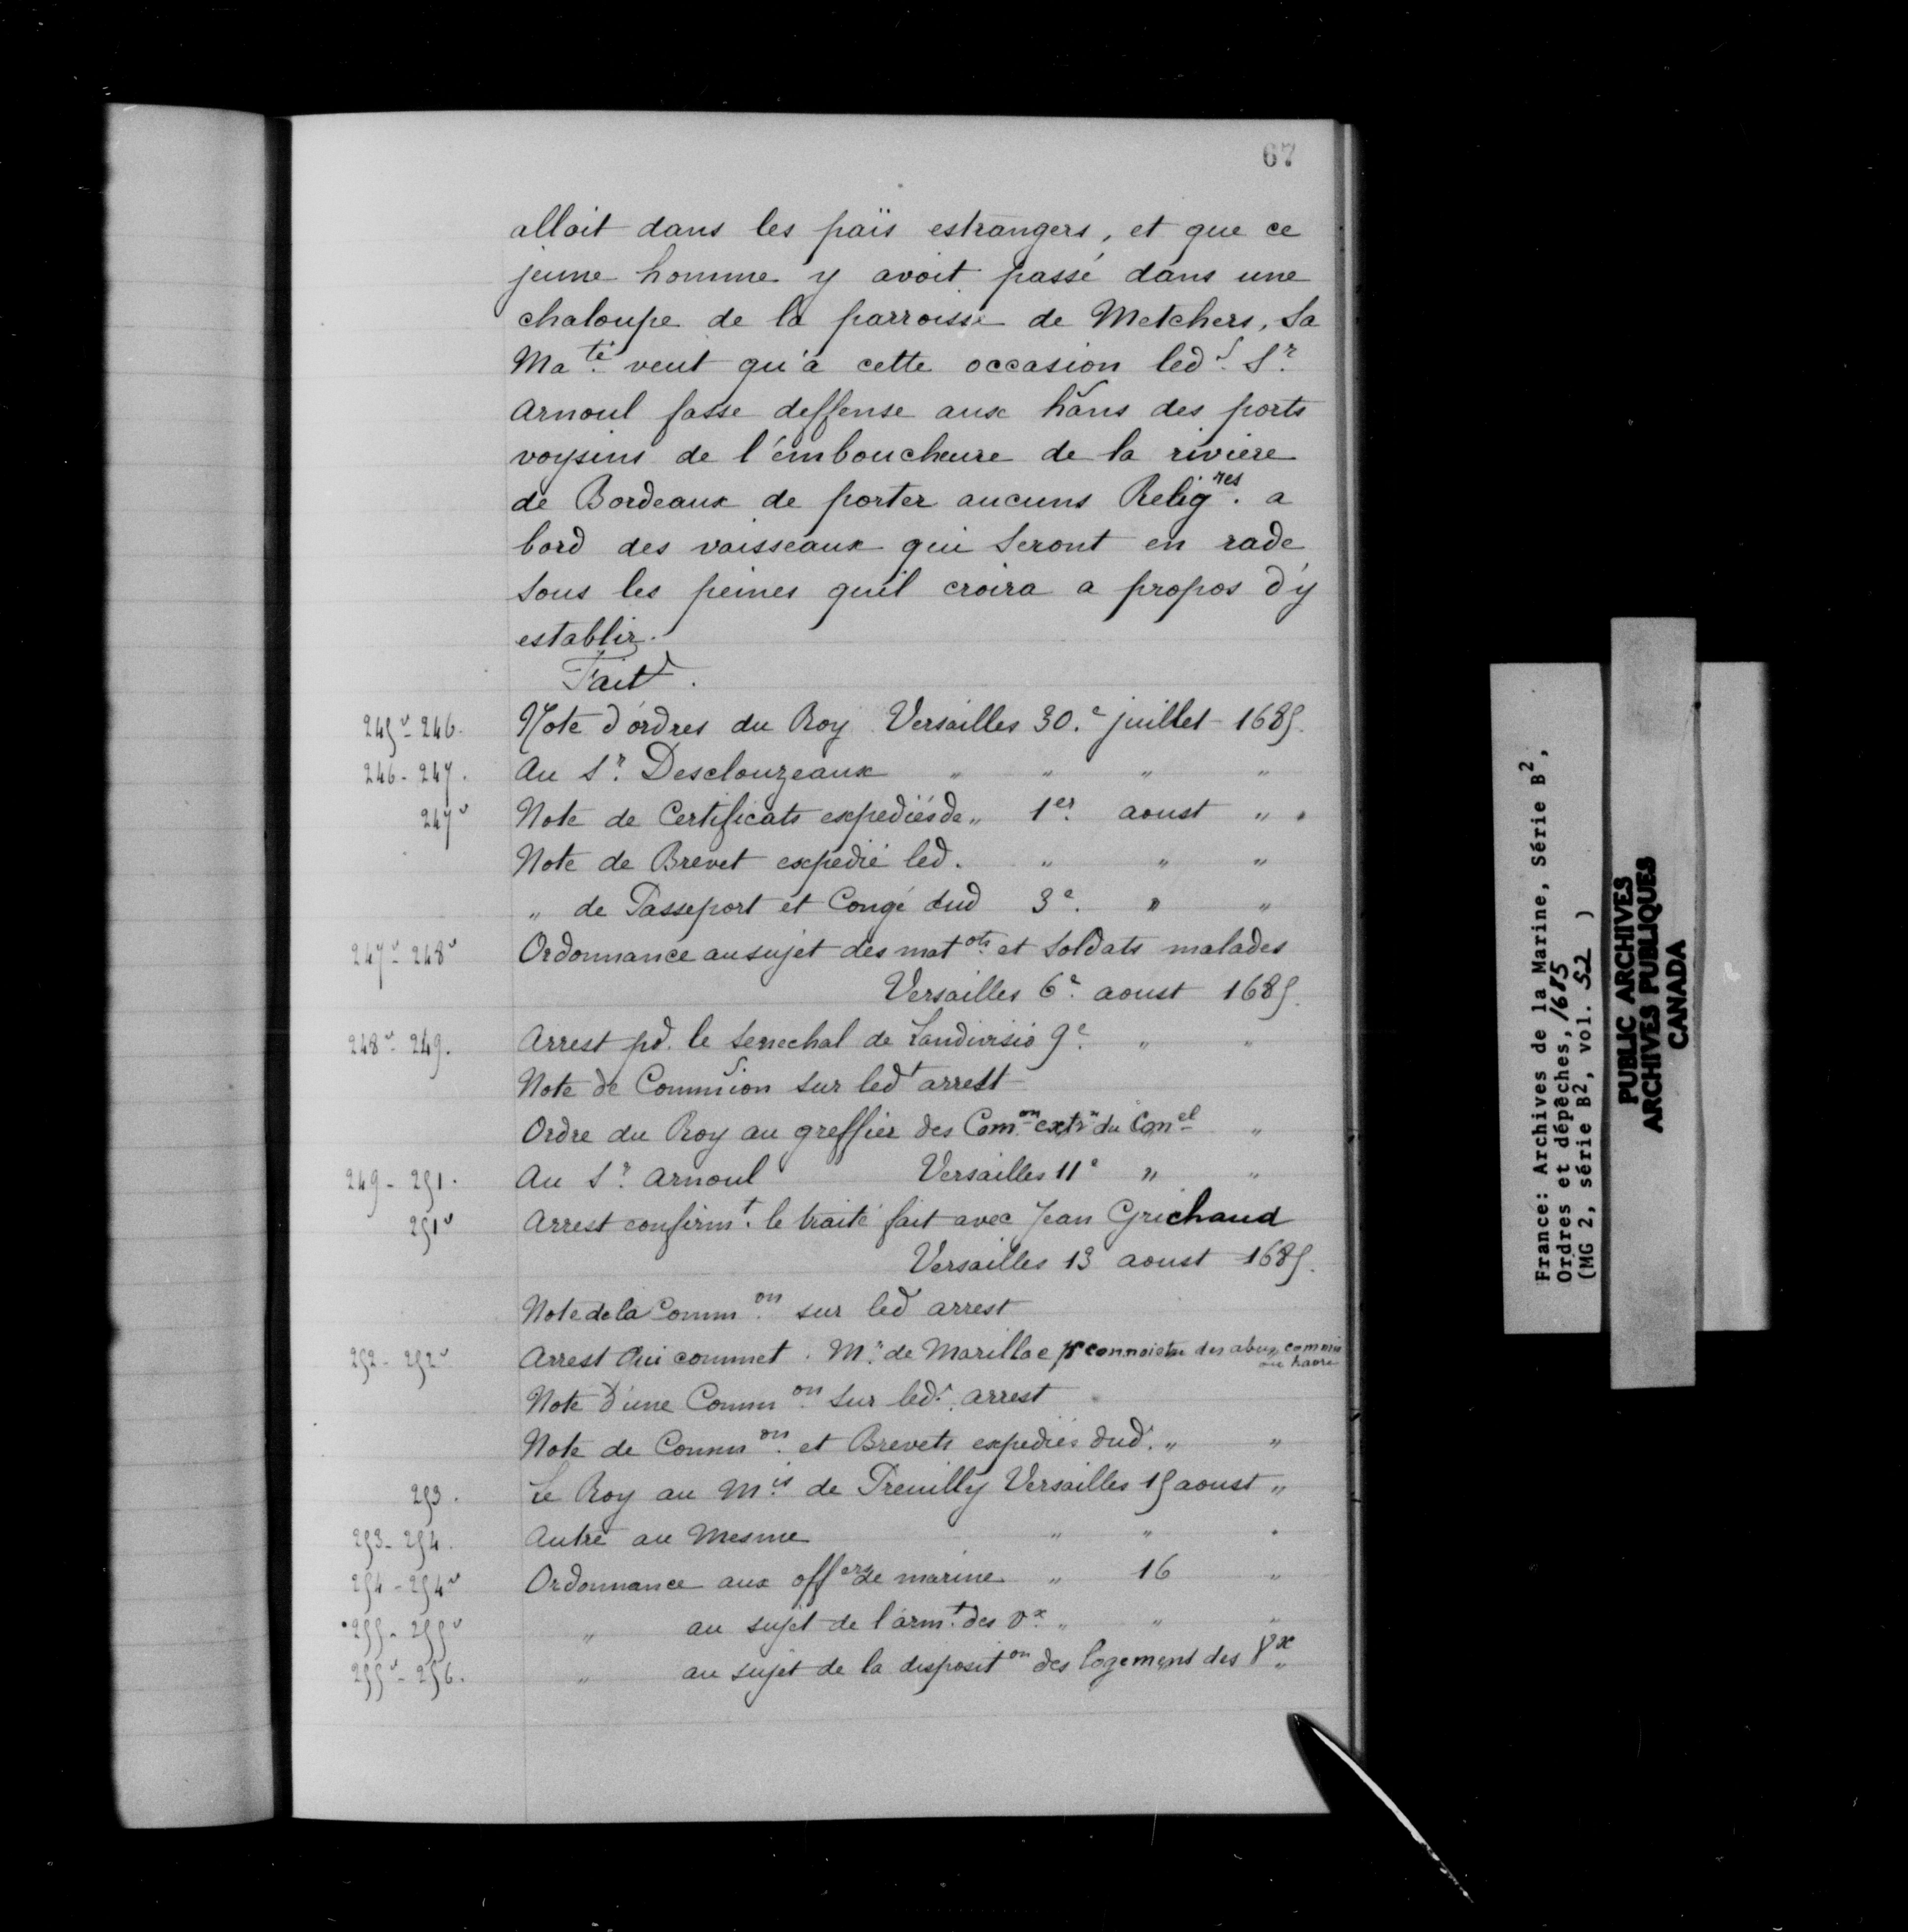 67
alloit dans les païs estrangers, et que ce
jeune homme y avoit passé dans une
chaloupe de la parroisse de Metchers, Sa
Ma.té veut qu'à cette occasion led. Sr.
Arnoul fasse deffense aux hãns des ports
voysins de l'emboucheure de la riviere
de Bordeaux de porter aucuns Relig.res a
bord des vaisseaux qui seront en rade
sous les peines quil croira a propos d'y
establir.
Fait.
245v-246. Note d'ordres du Roy Versailles 30.e juillet 1685.
246-247. Au Sr. Desclouzeaux " " " "
247v Note de Certificats expediés de " 1er. aoust "
Note de Brevet expedié led. " " "
" de Passeport et Congé dud 3e. " "
247v-248v Ordonnance au sujet des mat.ots et soldats malades
Versailles 6e. aoust 1685.
248v-249. Arrest pd. le Senechal de Landivisio 9e. " "
Note de Commsion sur led.t arrest
Ordre du Roy au greffier des Com.on extr. du Con.el "
249-251. Au Sr. Arnoul Versailles 11e " "
251v Arrest confirm.t le traité fait avec Jean Grichaud
Versailles 13 aoust 1685.
Note de la Comm.on sur led arrest
252-252v Arrest qui commet Mr. de Marillac pr connoistre des abus commis
au havre
Note d'une Comm.on sur led. arrest
Note de Comm.on et Brevets expediés dud. " "
253. Le Roy au M.is de Preuilly Versailles 15 aoust "
253-254. Autre au Mesme " " "
254-254v Ordonnance aux off.ers de marine " 16 "
255-255v " au sujet de l'arm.t des Vx. " " "
255v-256. " au sujet de la disposit.on des logemens des Vx. "
France: Archives de la Marine, Série B2,
Ordres et dépêches, 1685
(MG 2, série B2, vol. 52 )
PUBLIC ARCHIVES
ARCHIVES PUBLIQUES
CANADA